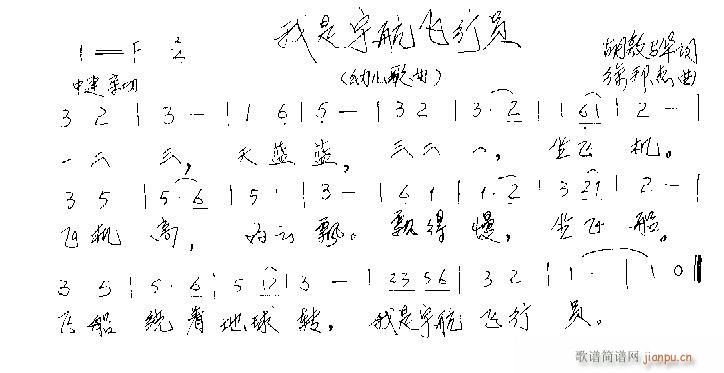 我是宇航飞行员
1=F 2/4
(幼儿歌曲)
胡敦骅词
徐邦杰曲
中速 亲切
3 2 | 3 - | 1 6 | 5 - | 3 2 | 3· 2 | 1 61 | 2 - |
一二 三, 天蓝蓝, 三二一, 坐飞机。
3 5 | 5· 6 | 5 · | 3 - | 6 1 | 1· 2 | 3 21 | 2 - |
飞机高, 白云飘。飘得慢, 坐飞船。
3 5 | 5· 6 | 5 12 | 3 - | 23 56 | 3 2 | 1 · | 1 0 ‖
飞船绕着地球转, 我是宇航飞行员。
歌谱简谱网
jianpu.cn